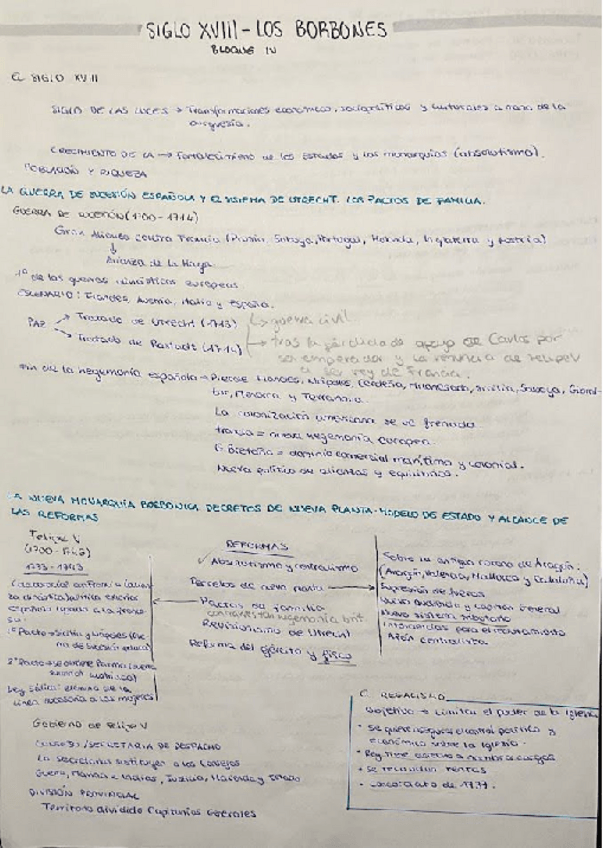 SIGLO XVIII - LOS BORBONES
BLOQUE IV
EL SIGLO XVIII
SIGLO DE LAS LUCES → Transformaciones económicas, sociopolíticas y culturales a mano de la
burguesía.
CRECIMIENTO DE LA → Fortalecimiento de los Estados y las monarquías (absolutismo).
POBLACIÓN Y RIQUEZA
LA GUERRA DE SUCESIÓN ESPAÑOLA Y EL SISTEMA DE UTRECHT. LOS PACTOS DE FAMILIA.
GUERRA DE SUCESIÓN (1700-1714)
Gran Alianza contra Francia (Prusia, Saboya, Portugal, Holanda, Inglaterra y Austria)
↓
Alianza de la Haya
1º de las guerras europeas
ESCENARIO: Flandes, Italia y España.
→ guerra civil
PAZ → Tratado de Utrecht (1713)
→ Tratado de Rastadt (1714)
→ tras la pérdida de apoyo de Carlos por
ser emperador y la renuncia de Felipe V
a ser rey de Francia.
Fin de la hegemonía española → Pierde Flandes, Nápoles, Cerdeña, Sicilia, Saboya, Gibral-
tar, Menorca y Terranova.
La colonización americana se ve frenada
Francia = nueva hegemonía europea.
G. Bretaña = dominio comercial marítimo y colonial.
Nueva política de alianzas y equilibrios.
LA NUEVA MONARQUÍA BORBÓNICA DECRETOS DE NUEVA PLANTA. MODELO DE ESTADO Y ALCANCE DE
LAS REFORMAS
Felipe V
(1700-
1733 - 1743
1º Pacto → Sicilia y Nápoles
2º Pacto → Parma
Ley Sálica:
REFORMAS
Absolutismo y centralismo
Decretos de nueva planta
Pactos de familia
contrarrestar hegemonía brit
Revisionismo de Utrecht
Reforma del ejército y fisco
Sobre la antigua corona de Aragón:
(Aragón, Valencia, Mallorca y Cataluña)
Supresión de fueros
Nueva audiencia y capitán general
Nuevo sistema tributario
Intendentes para el
centralista
Gobierno de Felipe V
/SECRETARIA DE DESPACHO
La secretaría sustituye a los Consejos
Guerra, Marina e Indias, Justicia, Hacienda y Estado
DIVISIÓN PROVINCIAL
Territorio dividido Capitanías Generales
REGALISMO
Objetivo → Limitar el poder de la Iglesia
• Se quiere el control político y
económico sobre la Iglesia.
• Rey tiene a cargos
• Se recaudan rentas
• Concordato de 1737.